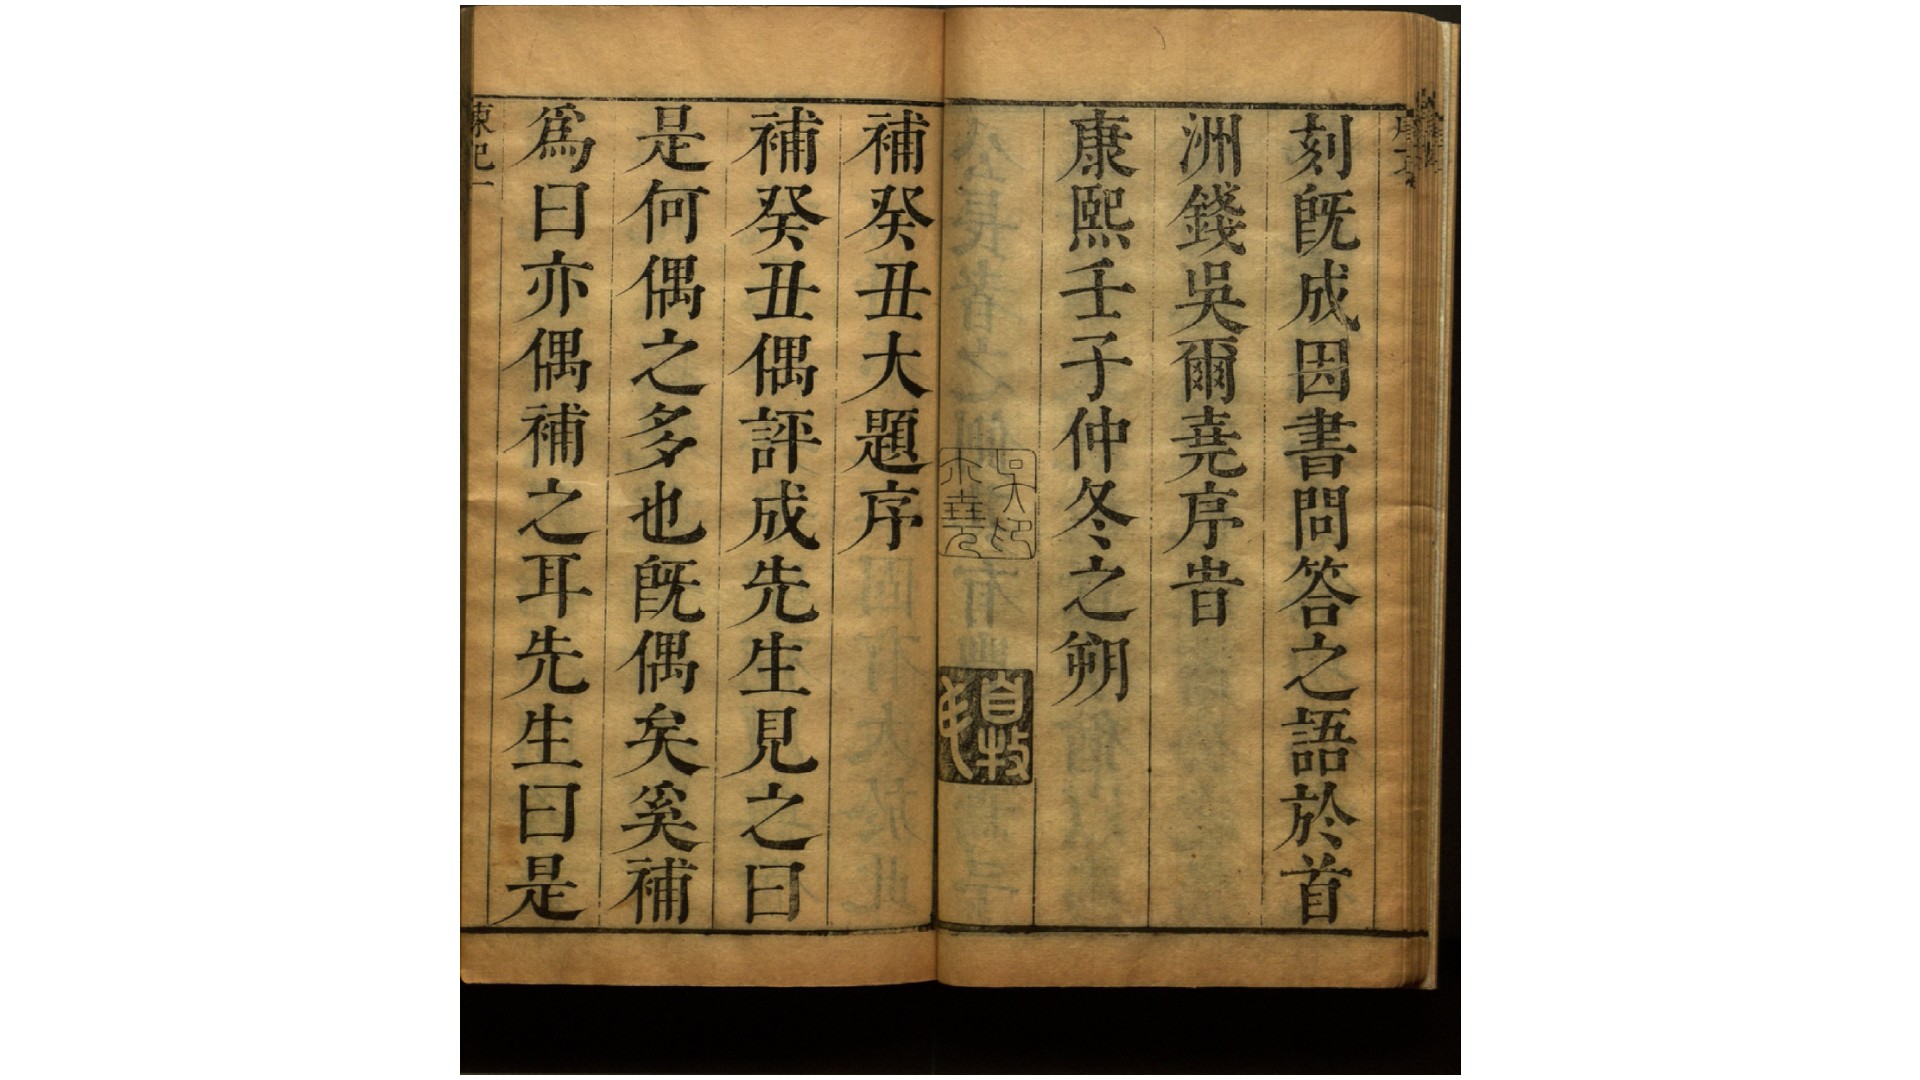 刻旣成因書問答之語於首
洲錢吳爾堯序旹
康熙壬子仲冬之朔
補癸丑大題序
補癸丑偶評成先生見之曰
是何偶之多也旣偶矣奚補
爲曰亦偶補之耳先生曰是